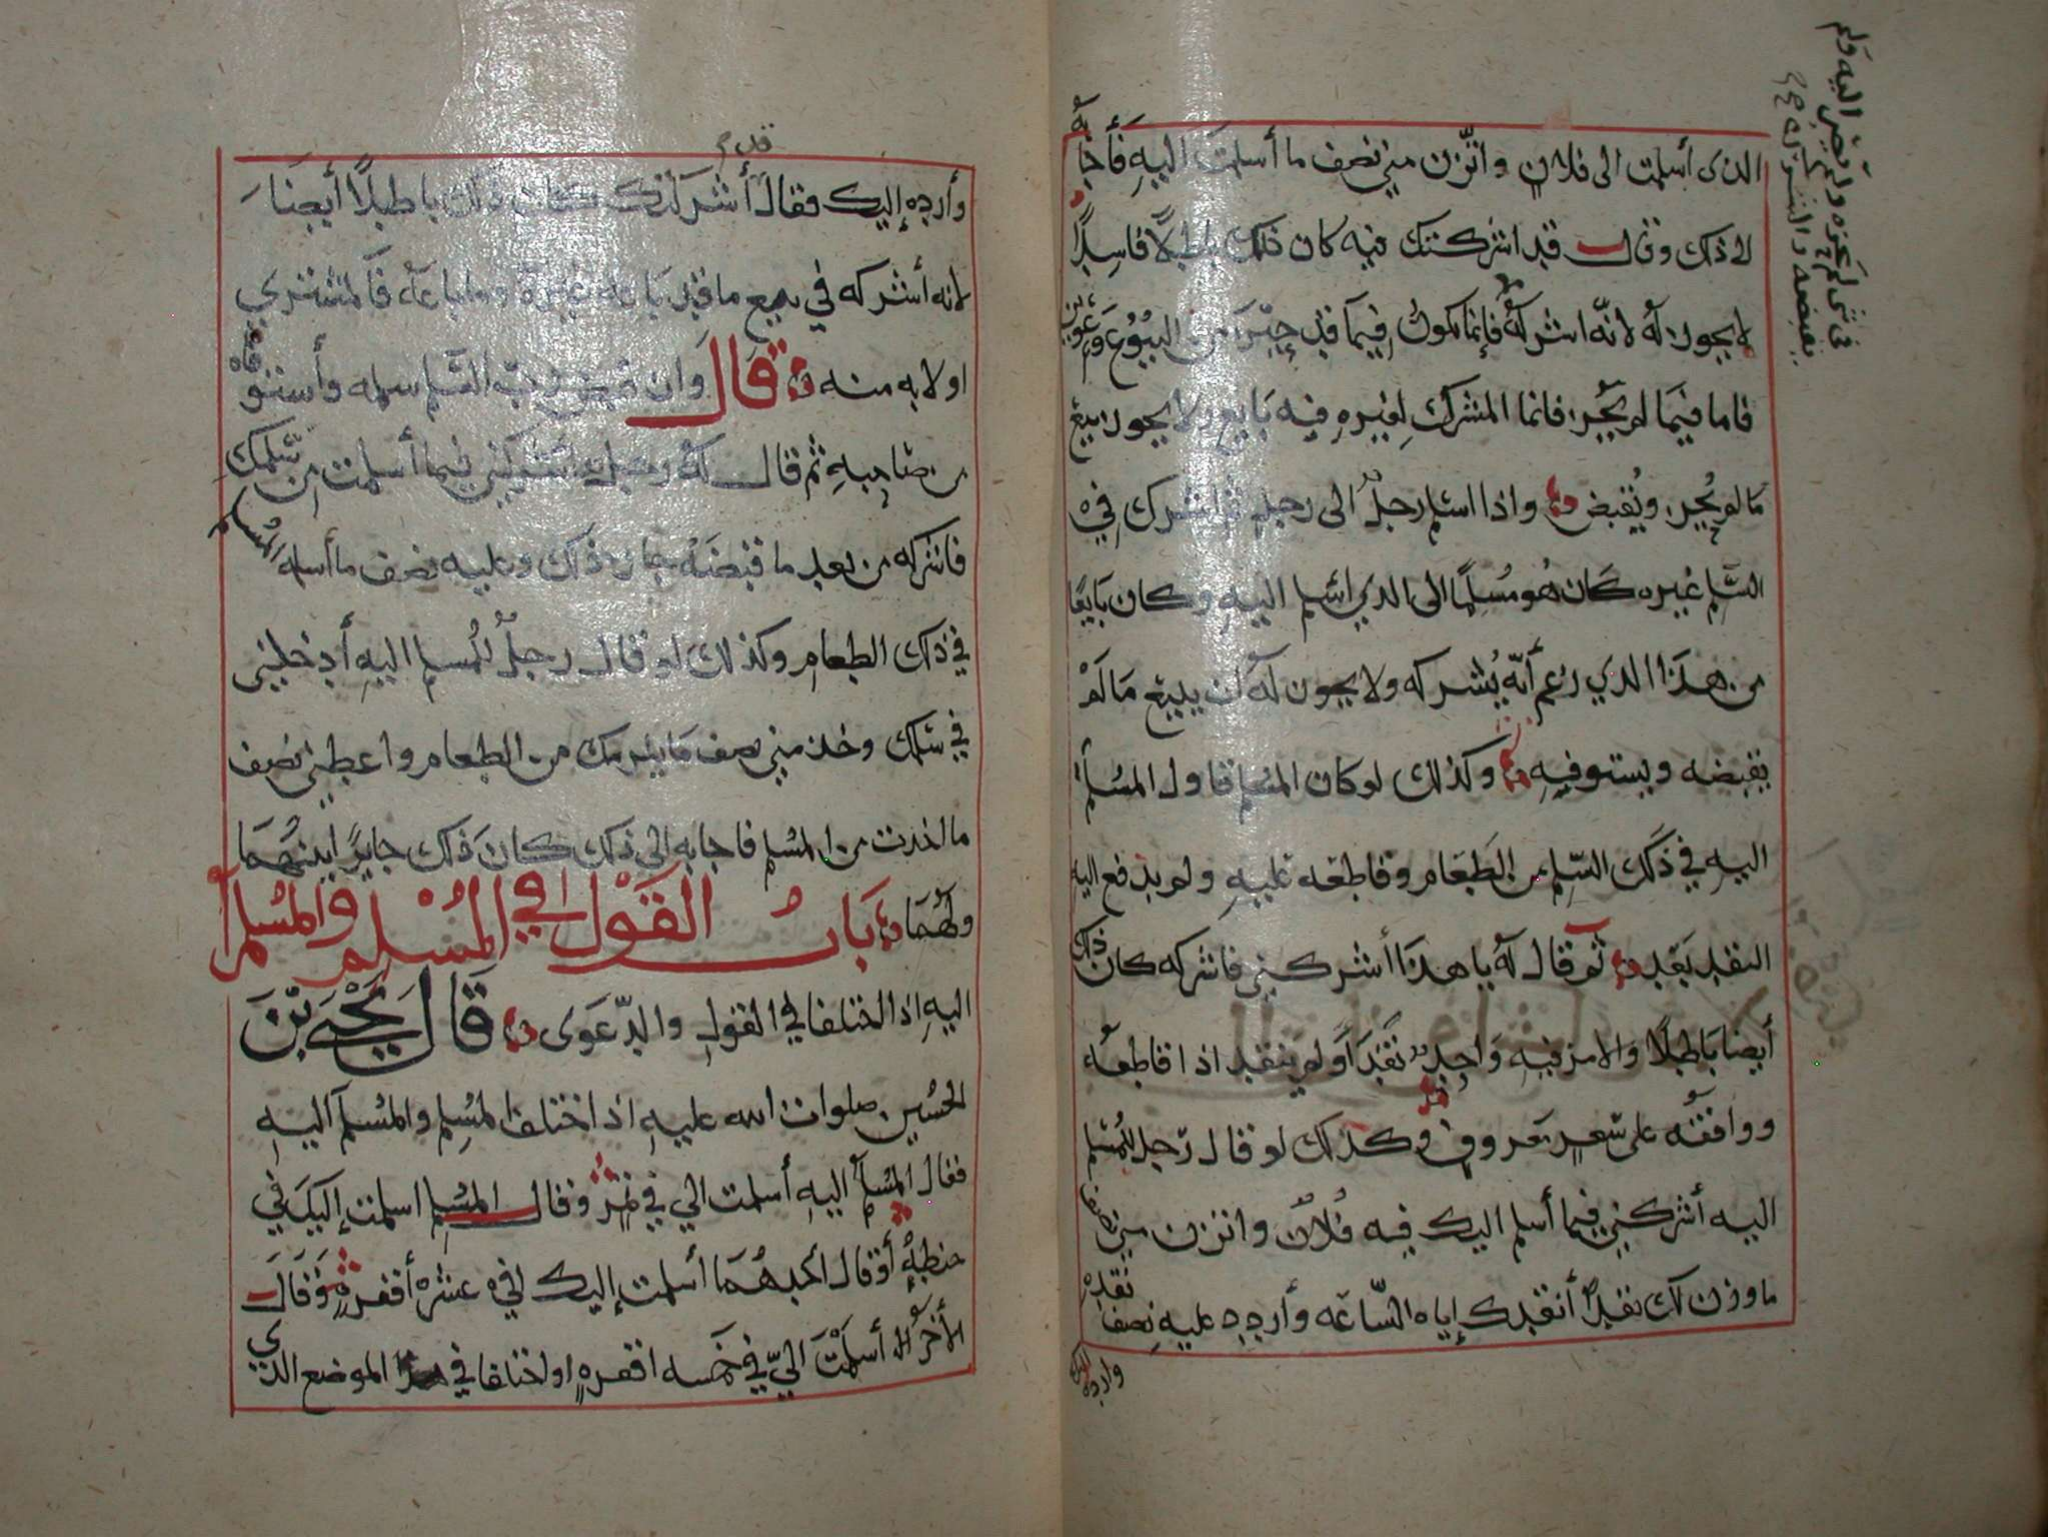 الذي أسلمت الى فلان واتزن مني نصف ما أسلمت اليه فأجابه
الى ذلك وقال قد اشركتك فيه كان ذلك باطلًا فاسدًا
لا يجوز له لانه اشركه فإنما يكون فيما قد من البيوع
فاما فيما لم يجز فانما المشرك لغيره فيه بايع ولا يجوز بيع
ما لم يجز ويقبض واذا اسلم رجلٌ الى رجلٍ فاشرك في
السلم غيره كان هو مسلمًا الى الذي اسلم اليه وكان بايعًا
من هذا الذي زعم أنه يُشركه ولا يجوز له أن يبيع ما لم
يقبضه ويستوفيه وكذلك لو كان المسلم قاول المسلم
اليه في ذلك السلم من الطعام وقاطعه عليه ولم يدفع اليه
النقد بعد ثم قال له يا هذا أشركني فاشركه كان ذلك
أيضا باطلًا والامر فيه واحد نقد او لم ينقد اذا قاطعه
ووافقه على سعر معروف وكذلك لو قال رجل للمسلم
اليه أشركني فيما أسلم اليك فيه فلان واتزن مني نصف
ما وزن لك نقدًا أنقدك إياه الساعه وأردد عليه نصف نقده
وارده اليك
في شي لم يحزه ولم يصر اليه ولم
يقبضه والشركه
وأرده إليك فقال أشركتك كان ذلك باطلًا أيضا
لانه أشركه في بيع ما قد باعه غيره وما باعه فالمشتري
اولا به منه قال وان قبض رب السلم سلمه وأستوفاه
من صاحبه ثم قال له رجل أشركني فيما أسلمت من سلمك
فاشركه من بعد ما قبضه جاز ذلك وعليه نصف ما أسلم المسلم
في ذلك الطعام وكذلك لو قال رجلٌ للمسلم اليه أدخلني
في سلمك وخذ مني نصف ما يلزمك من الطعام واعطني نصف
ما اخذت من المسلم فاجابه الى ذلك كان ذلك جايزًا بينهما
ولهما باب القول في المسلم والمسلم
اليه اذا اختلفا في القول والدعوى قال يحيى بن
الحسين صلوات الله عليه اذا اختلف المسلم والمسلم اليه
فقال المسلم اليه أسلمت الي في تمر وقال المسلم اسلمت إليك في
حنطةٍ أو قال احدهما أسلمت إليك في عشرة أقفزه وقال
الأخر أسلمت اليّ في خمسه اقفزه او اختلفا في الموضع الذي